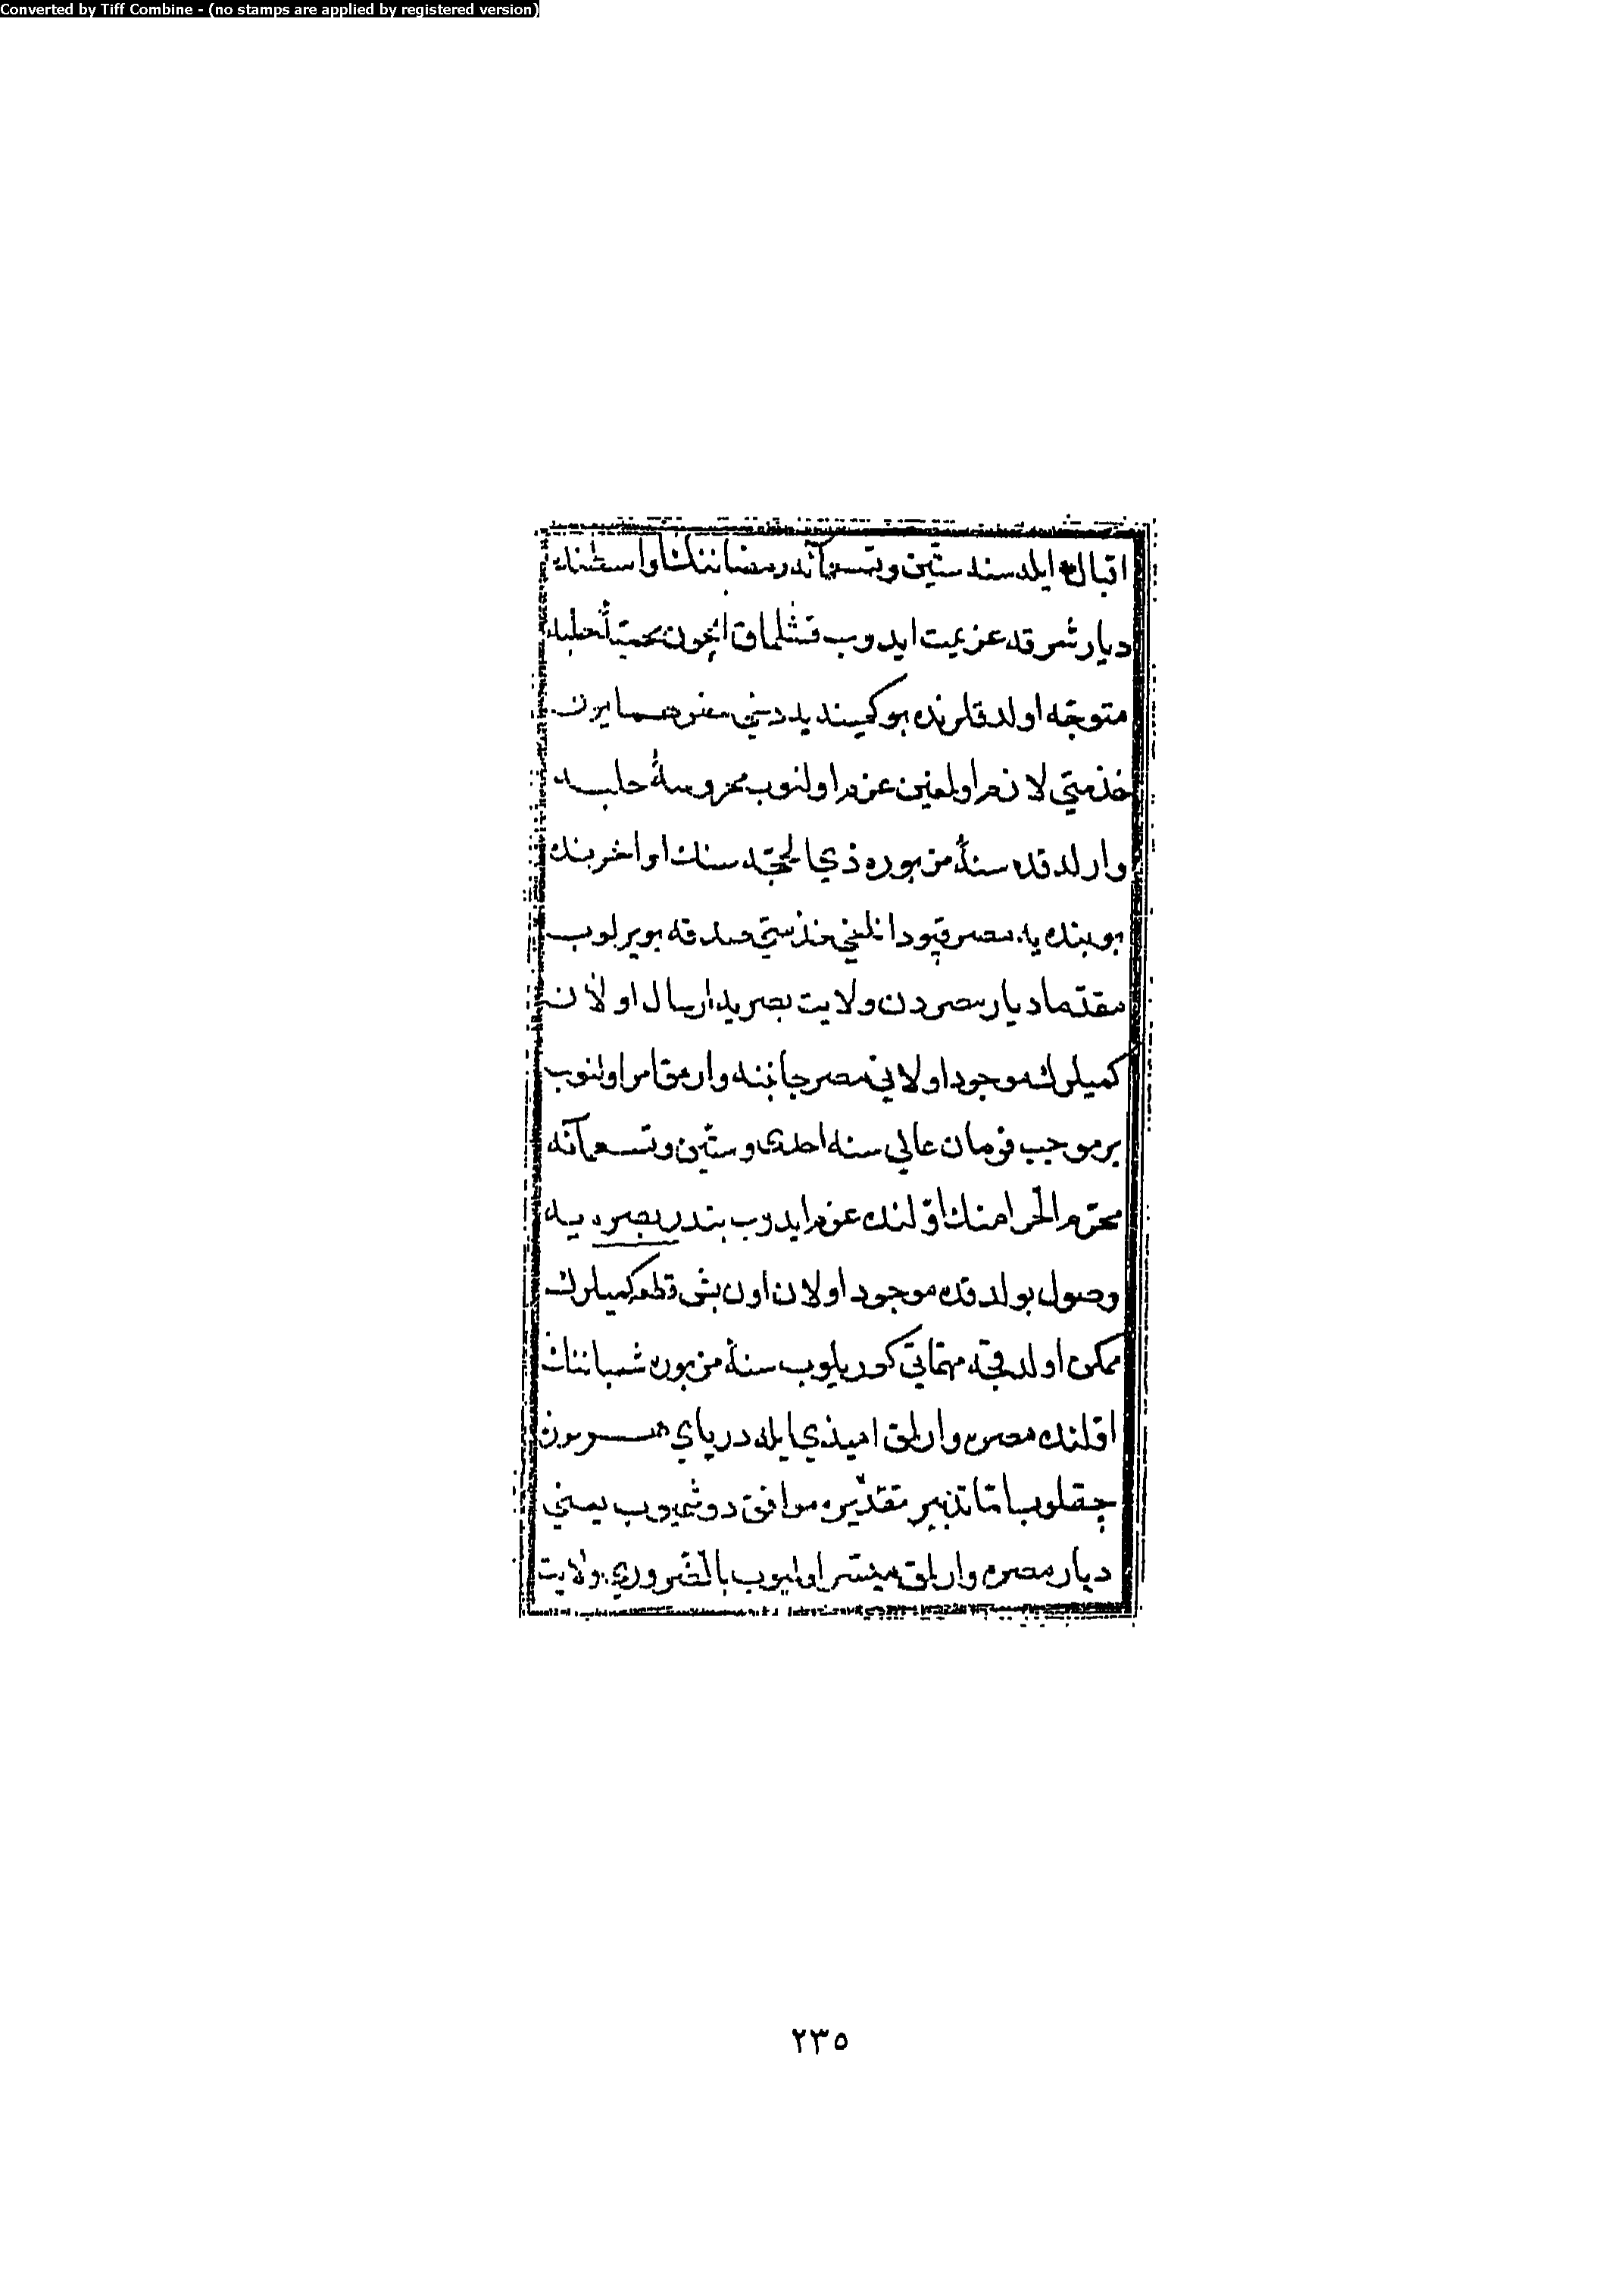 Converted by Tiff Combine - (no stamps are applied by registered version)
اقبال ايله سنه ستين وتسعمائه رمضاننك اواسطنده
ديار شرقه عزيمت ايدوب قشلمق ايچون محميۀ حلبه
متوجه اولدقلرنده بو كمينه يه دخى سفر همايون
خذمتي لازم اولمغين عزم اولنوب محروسۀ حلبه
وارلدقده سنۀ مزبوره ذي الحجه سنك اواخرينده
بو بنده يه مصر قپودانلغي خذمتي صدقه بويريلوب
مقدّما ديار مصردن ولايت بصريه ارسال اولان
كميلرك موجود اولاني مصر جانبنه وارمق امر اولنوب
بر موجب فرمان عالي سنه احدى وستين وتسعمائه
محرّم الحرامنك اوّلنده عزم ايدوب بندر بصره يه
وصول بولدقده موجود اولان اون بش قطعه كميلرك
ممكن اولدقجه مهمّاتي كوريلوب سنۀ مزبوره شعباننك
اوّلنده مصره وارلمق اميذي ايله درياي هرمزه
چقلوب امّا تدبير تقديره موافق دوشميوب يعني
ديار مصره وارلمق ميسّر اولميوب بالضّروري ولايت
٢٣٥